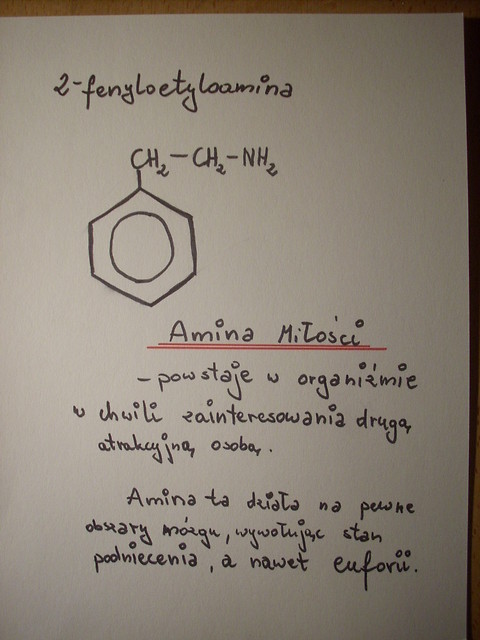 2-fenyloetyloamina
CH₂-CH₂-NH₂
Amina Miłości
- powstaje w organiźmie
w chwili zainteresowania drugą
atrakcyjną osobą.
Amina ta działa na pewne
obszary mózgu, wywołując stan
podniecenia, a nawet euforii.